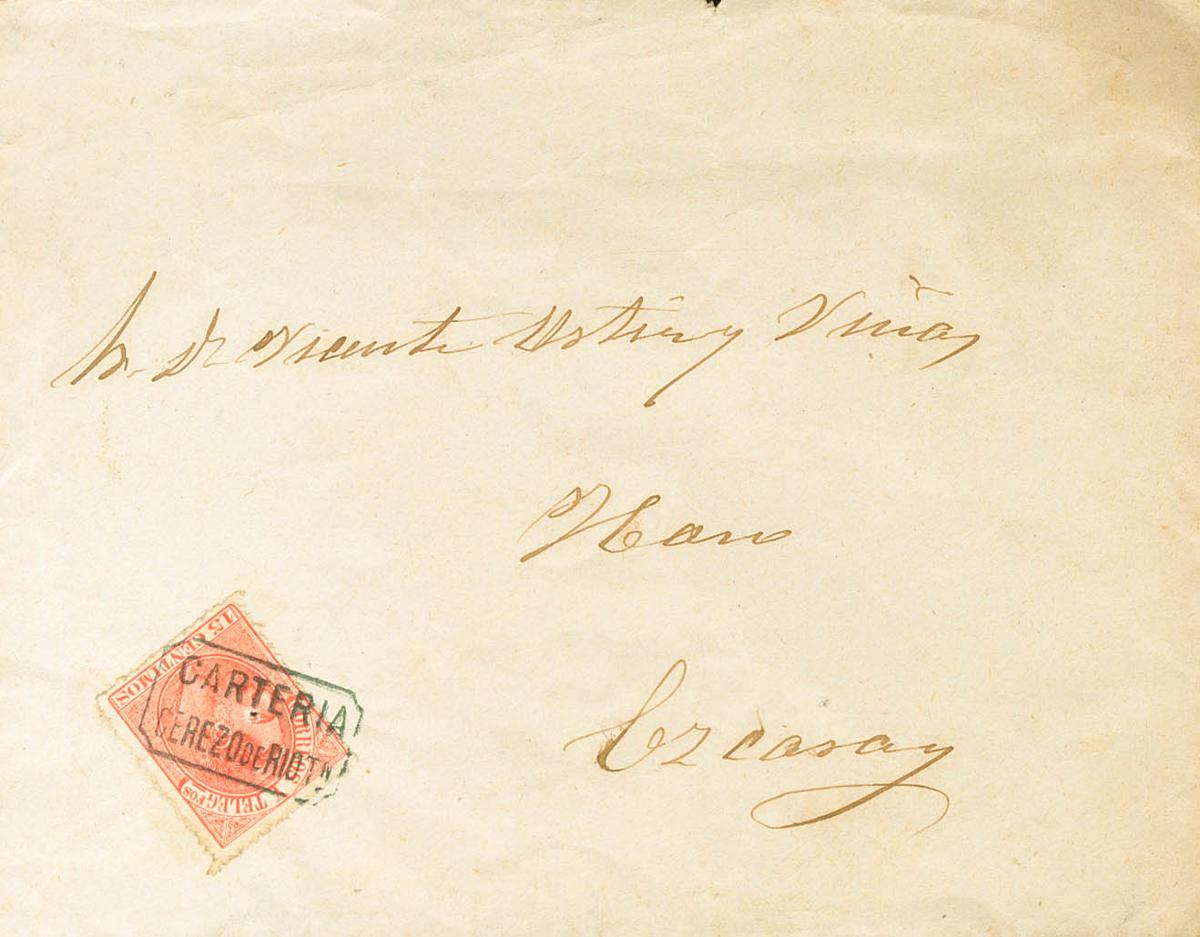 Sr. Dn Vicente Ortiz y Viñas
Haro
Ezcaray
15 CENTIMOS
CORREOS Y TELEGFOS
CARTERIA
CEREZO DE RIO TN